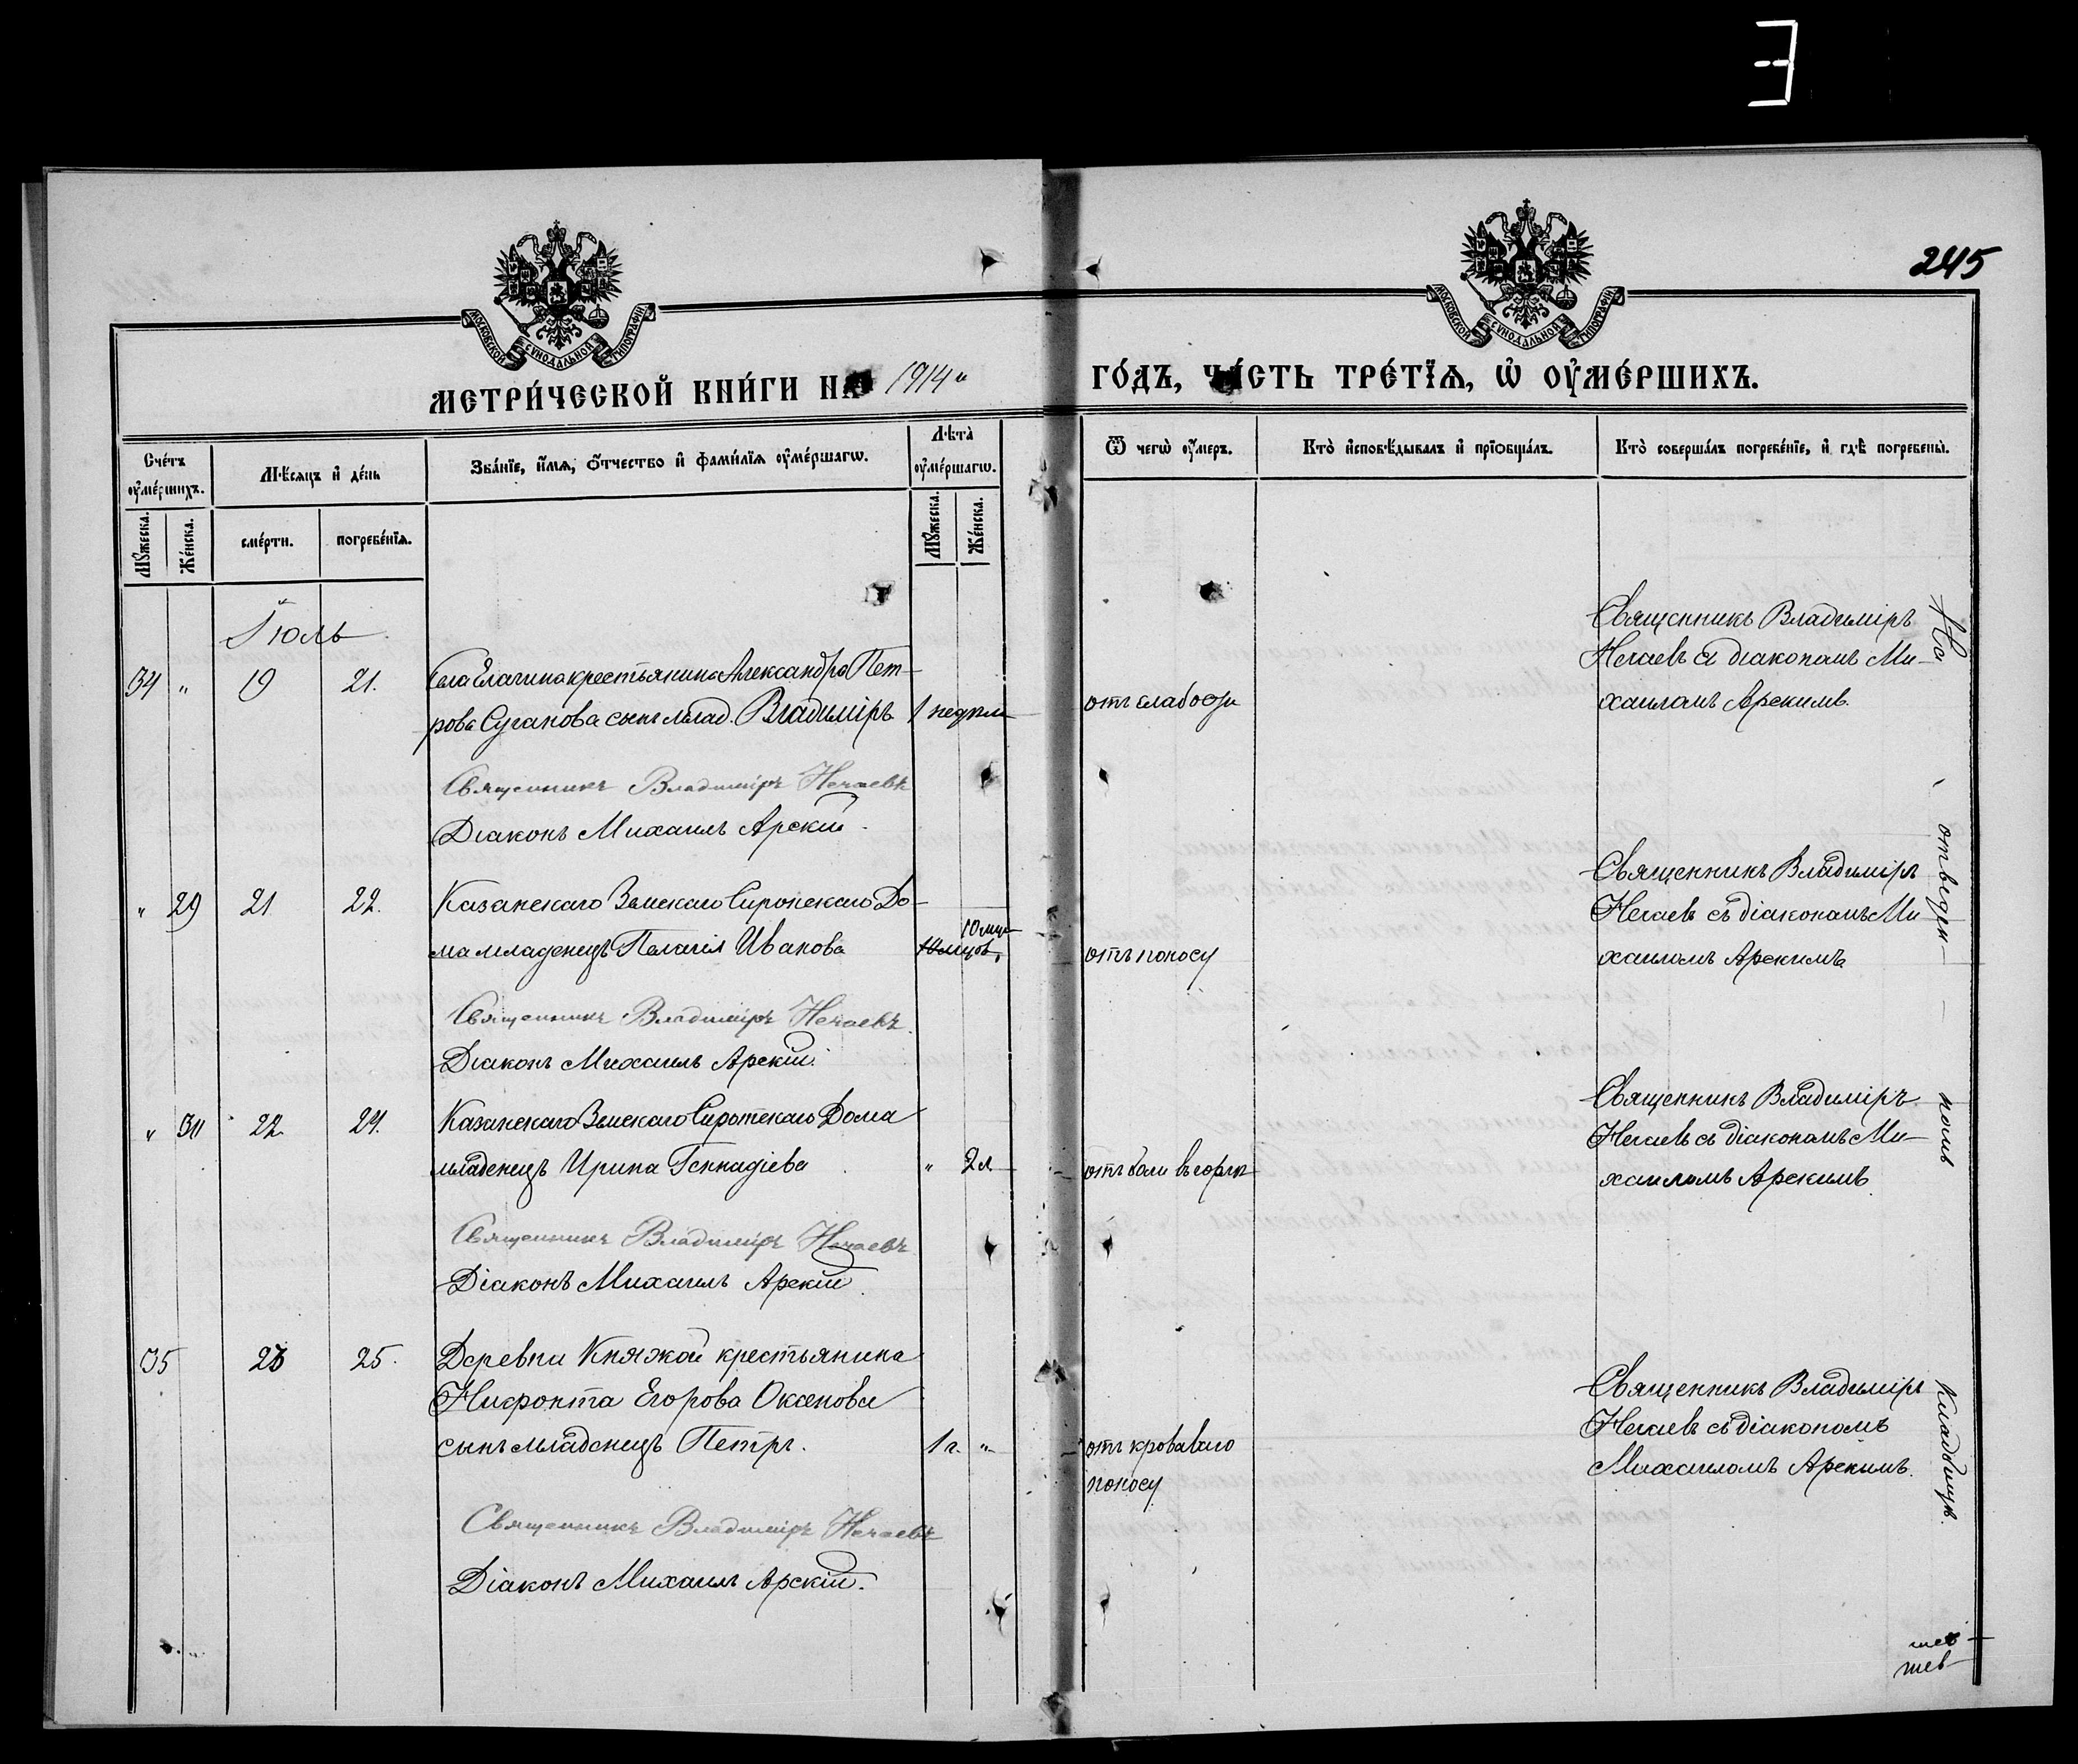 Е
245
МОСКОВСКОЙ СѴНОДАЛЬНОЙ ТИПОГРАФІИ
МОСКОВСКОЙ СѴНОДАЛЬНОЙ ТИПОГРАФІИ
МЕТРИ́ЧЕСКОЙ КНИ́ГИ НА 1914 „ ГО́ДЪ, ЧА́СТЬ ТРЕ́ТЇѦ, Ѡ҆ ОУ҆МЕ́РШИХЪ.
Сче́тъ оу҆ме́ршихъ.
Мꙋ́жеска.
Же́нска.
Мѣ́сяцъ и҆ де́нь
сме́рти.
погребе́нїѧ.
Зва́нїе, и҆́мѧ, ѻ҆́тчество и҆ фами́лїѧ оу҆ме́ршагѡ.
Лѣта̀ оу҆ме́ршагѡ.
Мꙋ́жеска.
Же́нска.
Ѿ чегѡ̀ оу҆́меръ.
Кто̀ и҆сповѣ́дывалъ и҆ прїѡбща́лъ.
Кто̀ соверша́лъ погребе́нїе, и҆ гдѣ̀ погребены̀.
Іюль
34 „ 19 21. Села Елагина крестьянина Александра Пет-
рова Суганова сынъ млад. Владиміръ 1 недѣли
отъ слабости
Священникъ Владиміръ
Нечаевъ съ діакономъ Ми-
хаиломъ Арскимъ.
Священникъ Владиміръ Нечаевъ
Діаконъ Михаилъ Арскій.
„ 29 21 22. Казанскаго Земскаго Сиротскаго До-
ма младенецъ Пелагія Иванова
отъ поносу
Священникъ Владиміръ
Нечаевъ съ діакономъ Ми
хаиломъ Арскимъ
Священникъ Владиміръ Нечаевъ.
Діаконъ Михаилъ Арскій.
„ 22. 24. Казанскаго Земскаго Сиротскаго Дома
младенецъ Ирина Геннадіева „ 2 л.
отъ боли въ горлѣ
Священникъ Владиміръ
Нечаевъ съ діакономъ Ми-
хаиломъ Арскимъ
Священникъ Владиміръ Нечаевъ
Діаконъ Михаилъ Арскій.
35 23 25. Деревни Княжой крестьянина
Нифонта Егорова Оксенова
сынъ младенецъ Петръ. 1 г. „
отъ кроваваго
поносу
Священникъ Владиміръ
Нечаевъ съ діакономъ
Михаиломъ Арскимъ.
Священникъ Владиміръ Нечаевъ
Діаконъ Михаилъ Арскій.
На отведен-номъ кладбищѣ.